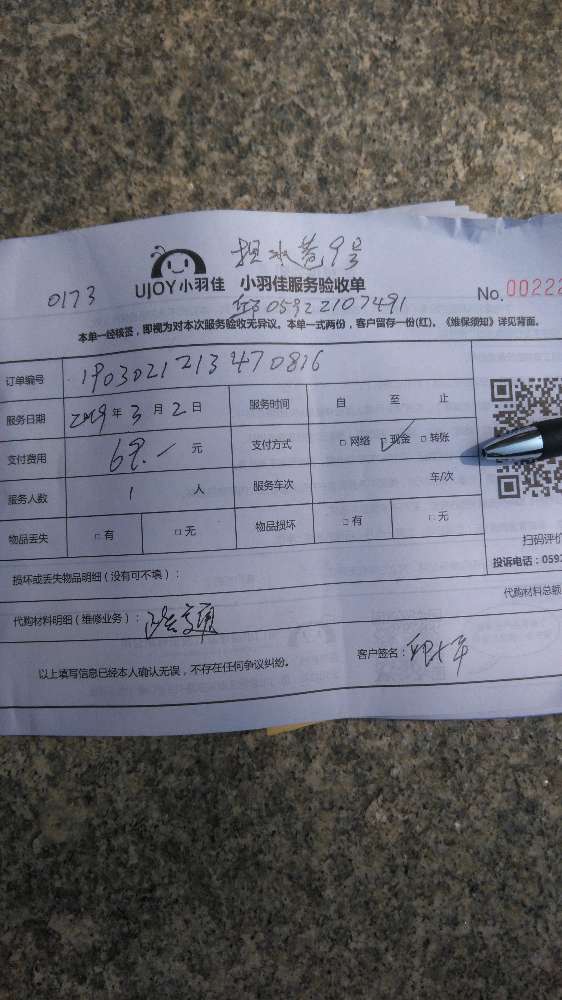 担水巷9号
0173
UJOY小羽佳 小羽佳服务验收单
No.00222
邱05922107491
本单一经核签，即视为对本次服务验收无异议。本单一式两份，客户留存一份(红)。《维保须知》详见背面。
订单编号 190302121347 0816
服务日期 2019年3月2日 服务时间 自 至 止
支付费用 68.- 元 支付方式 □网络 现金 □转账
服务人数 1 人 服务车次 车/次
物品丢失 □有 □无 物品损坏 □有 □无
扫码评价
投诉电话：059
损坏或丢失物品明细（没有可不填）：
代购材料总额
代购材料明细（维修业务）：
客户签名：
以上填写信息已经本人确认无误，不存在任何争议纠纷。